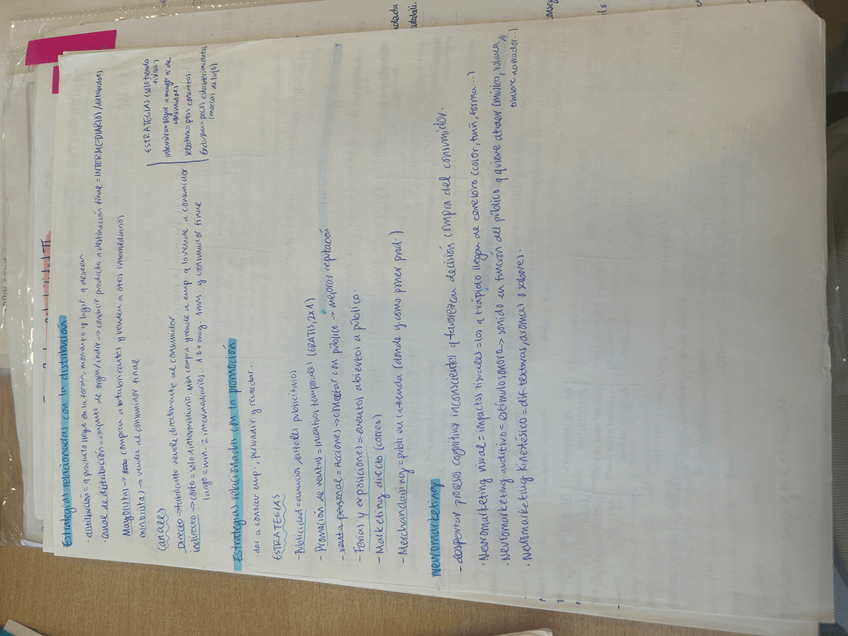 Estrategias relacionadas con la distribución
· distribución = q producto llegue en la forma, momento y lugar q desean
· canal de distribución = conjunto de org → conducir producto a destinación final = INTERMEDIARIOS
Mayorista → compran a fabricantes y venden a otros intermediarios
minorista → vende al consumidor final
canales
Directo → fabricante vende directamente al consumidor
indirecto → corto = solo 1 intermediario, compra grande a emp q lo vende a consumidor
largo = min. 2 intermediarios. 1 o + may 1 min y consumidor final
ESTRATEGIAS (solo tienda física)
intensiva = llegar a mayor nº de consumidores
selectiva = ptos concretos
Exclusiva = pocos establecimientos (marcas de lujo)
Estrategias relacionada con la promoción
· dar a conocer emp, persuadir y recordar.
ESTRATEGIAS
- Publicidad = anuncios, carteles publicitarios
- Promoción de ventas = incentivos temporales (GRATIS, 2x1)
- venta personal = Acciones → conectar con público → mejorar reputación
- Ferias y exposiciones = eventos abiertos a público.
- Marketing directo (correo)
- Merchandising = publi en la tienda (donde y como poner prod.)
Neuromarketing
- despertar procesos cognitivos inconscientes q favorezcan decisión compra del consumidor.
· Neuromarketing visual = impactos visuales = los q + rápido llegan al cerebro (color, tmñ, forma...)
· Neuromarketing auditivo = estímulo sonoro → sonido en función del público q quiere atraer (música, timbre narrador...)
· Neuromarketing kinestésico = dif texturas, aromas o sabores.